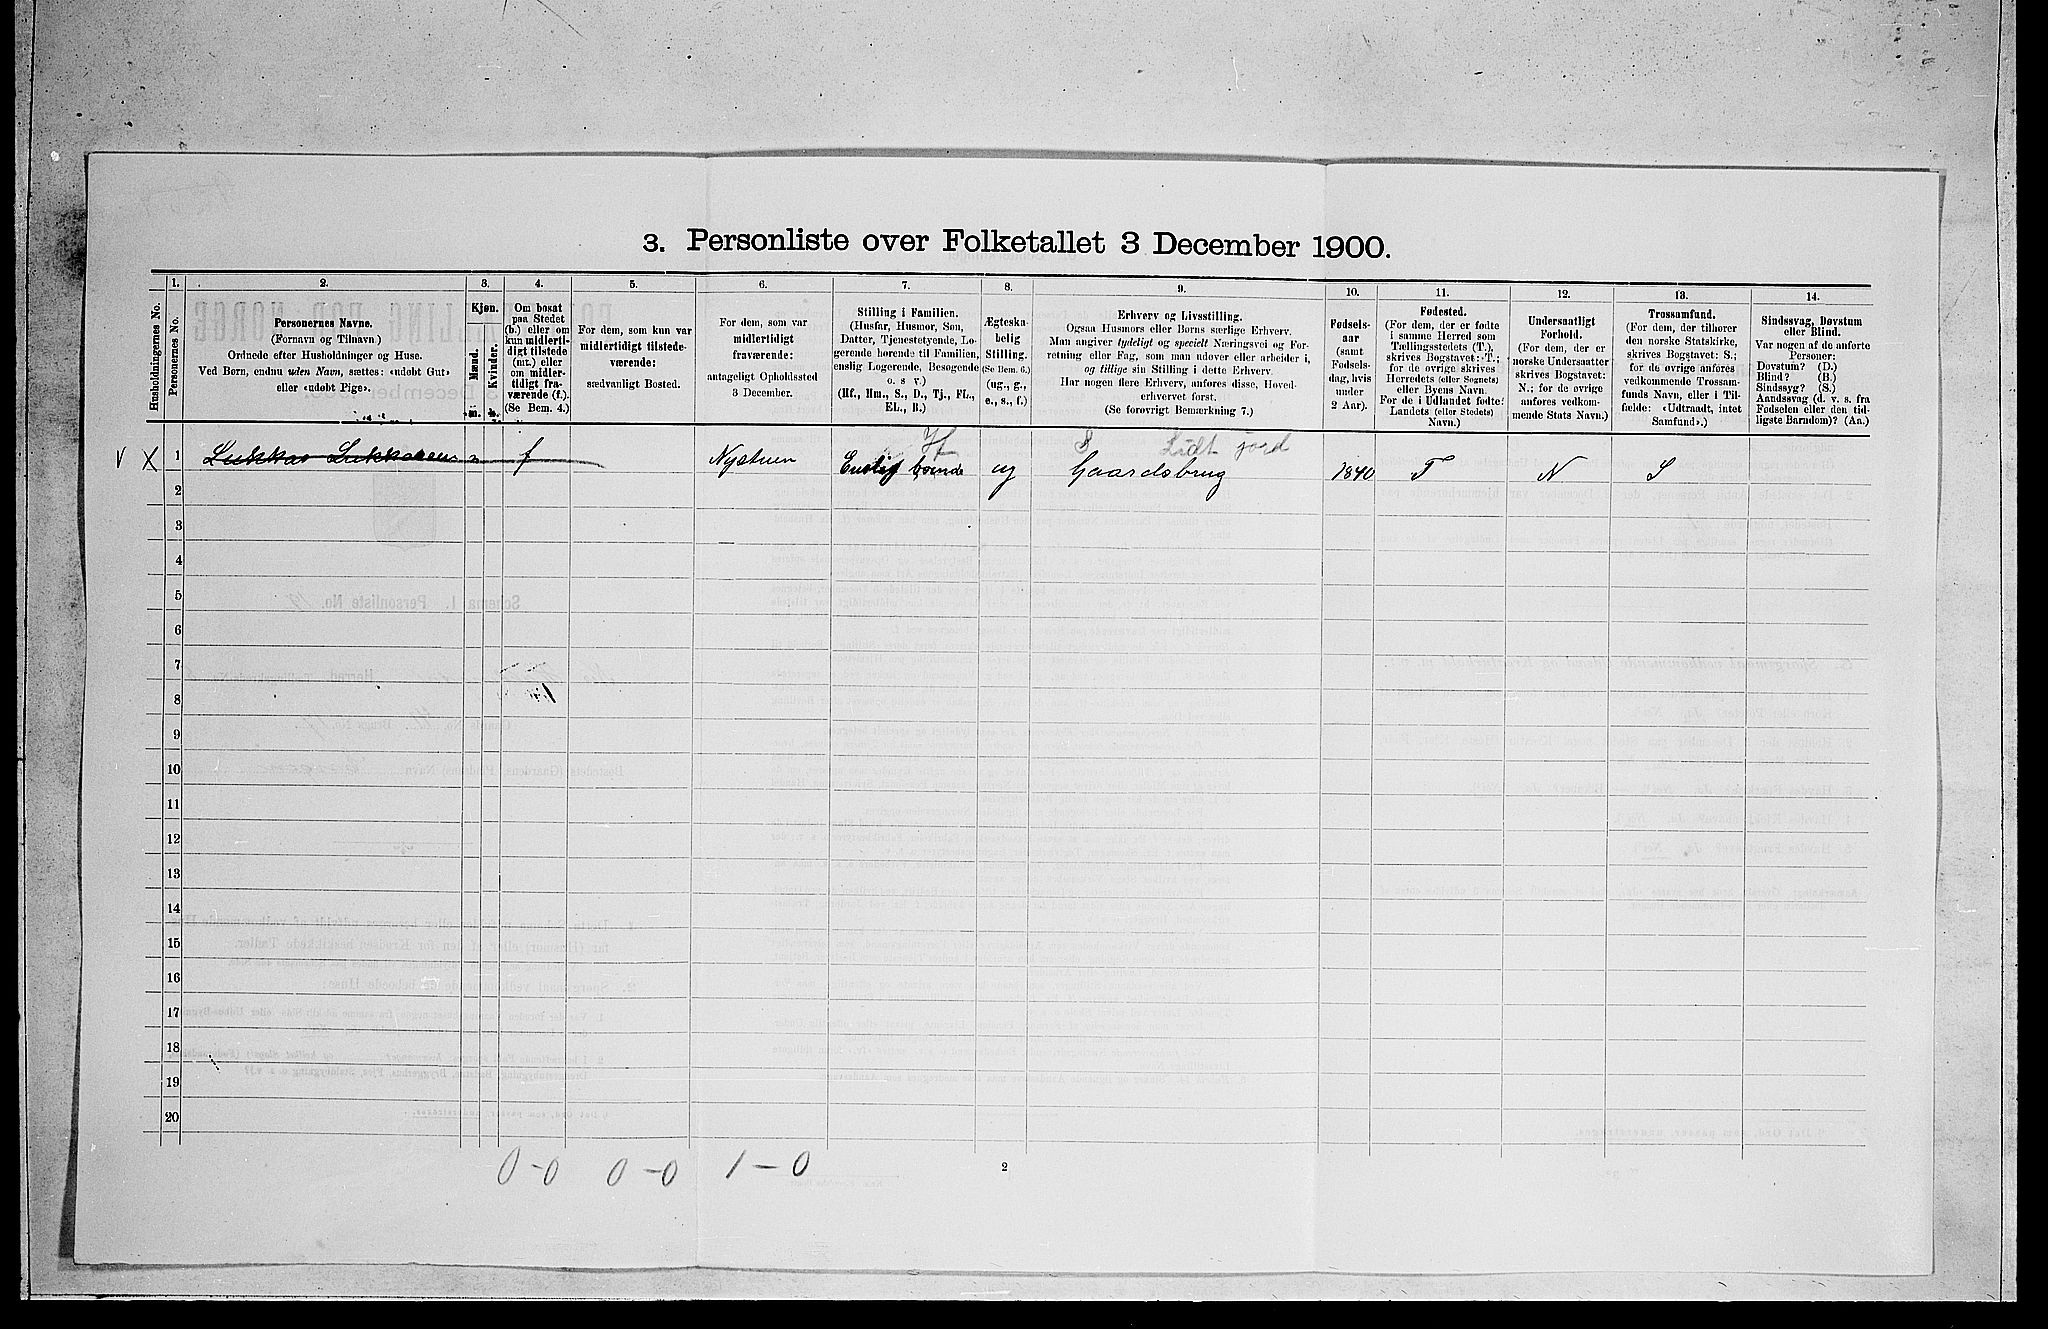 3. Personliste over Folketallet 3 December 1900.
Husholdningernes No.
1.
Personernes No.
2.
Personernes Navne.
(Fornavn og Tilnavn)
Ordnede efter Husholdninger og Huse.
Ved Børn, endnu uden Navn, sættes: «udøbt Gut»
eller «udøbt Pige».
3.
Kjøn.
Mænd.
Kvinder.
m.
k.
4.
Om bosat
paa Stedet
(b.) eller om
kun midlerti-
digt tilstede
(mt.) eller
om midler-
tidigt fra-
værende (f.).
(Se Bem. 4.)
5.
For dem, som kun var
midlertidigt tilstede-
værende:
sædvanligt Bosted.
6.
For dem, som var
midlertidigt
fraværende:
antageligt Opholdssted
3 December.
7.
Stilling i Familien.
(Husfar, Husmor, Søn,
Datter, Tjenestetyende, Lo-
gerende hørende til Familien,
enslig Logerende, Besøgende
o. s v.)
(Hf., Hm., S., D., Tj., FL.,
EL., B.)
8.
Ægteska-
belig
Stilling.
(Se Bem. 6.)
(ug., g.,
e., s., f.)
9.
Erhverv og Livsstilling.
Ogsaa Husmors eller Børns særlige Erhverv.
Man angiver tydeligt og specielt Næringsvei og For-
retning eller Fag, som man udøver eller arbeider i,
og tillige sin Stilling i dette Erhverv.
Har nogen flere Erhverv, anføres disse, Hoved-
erhvervet først.
(Se forøvrigt Bemærkning 7.)
10.
Fødsels-
aar
(samt
Fødsels-
dag, hvis
under
2 Aar).
11.
Fødested.
(For dem, der er fødte
i samme Herred som
Tællingsstedets (T.),
skrives Bogstavet: T.;
for de øvrige skrives
Herredets (eller Sognets)
eller Byens Navn.
For de i Udlandet fødte:
Landets (eller Stedets)
Navn.)
12.
Undersaatligt
Forhold.
(For dem, der er
norske Undersaatter
skrives Bogstavet:
N.; for de øvrige
anføres vedkom-
mende Stats Navn.)
13.
Trossamfund.
(For dem, der tilhører
den norske Statskirke,
skrives Bogstavet: S.;
for de øvrige anføres
vedkommende Trossam-
funds Navn, eller i Til-
fælde: «Udtraadt, intet
Samfund».)
14.
Sindssvag, Døvstum
eller Blind.
Var nogen af de anførte
Personer:
Døvstum? (D.)
Blind? (B.)
Sindssyg? (S.)
Aandssvag (d. v. s. fra
Fødselen eller den tid-
ligste Barndom)? (Aa.)
Hf S Lidt jord
V X 1 Lukkas Lukkassen f Nystuen Enslig boende ug Gaardsbrug 1840 T N S
2
3
4
5
6
7
8
9
10
11
12
13
14
15
16
17
18
19
20
0-0 0-0 1-0
2